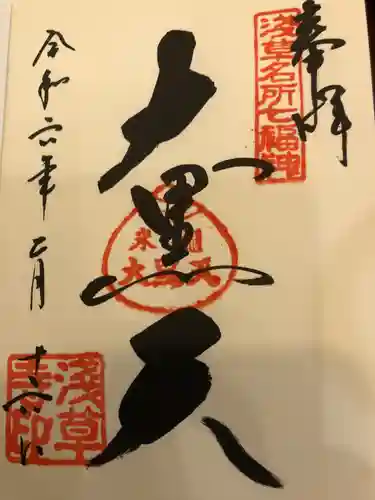 奉拝
浅草名所七福神
大黒天
米櫃
大黒天
令和六年二月
十六日
浅草
寺印